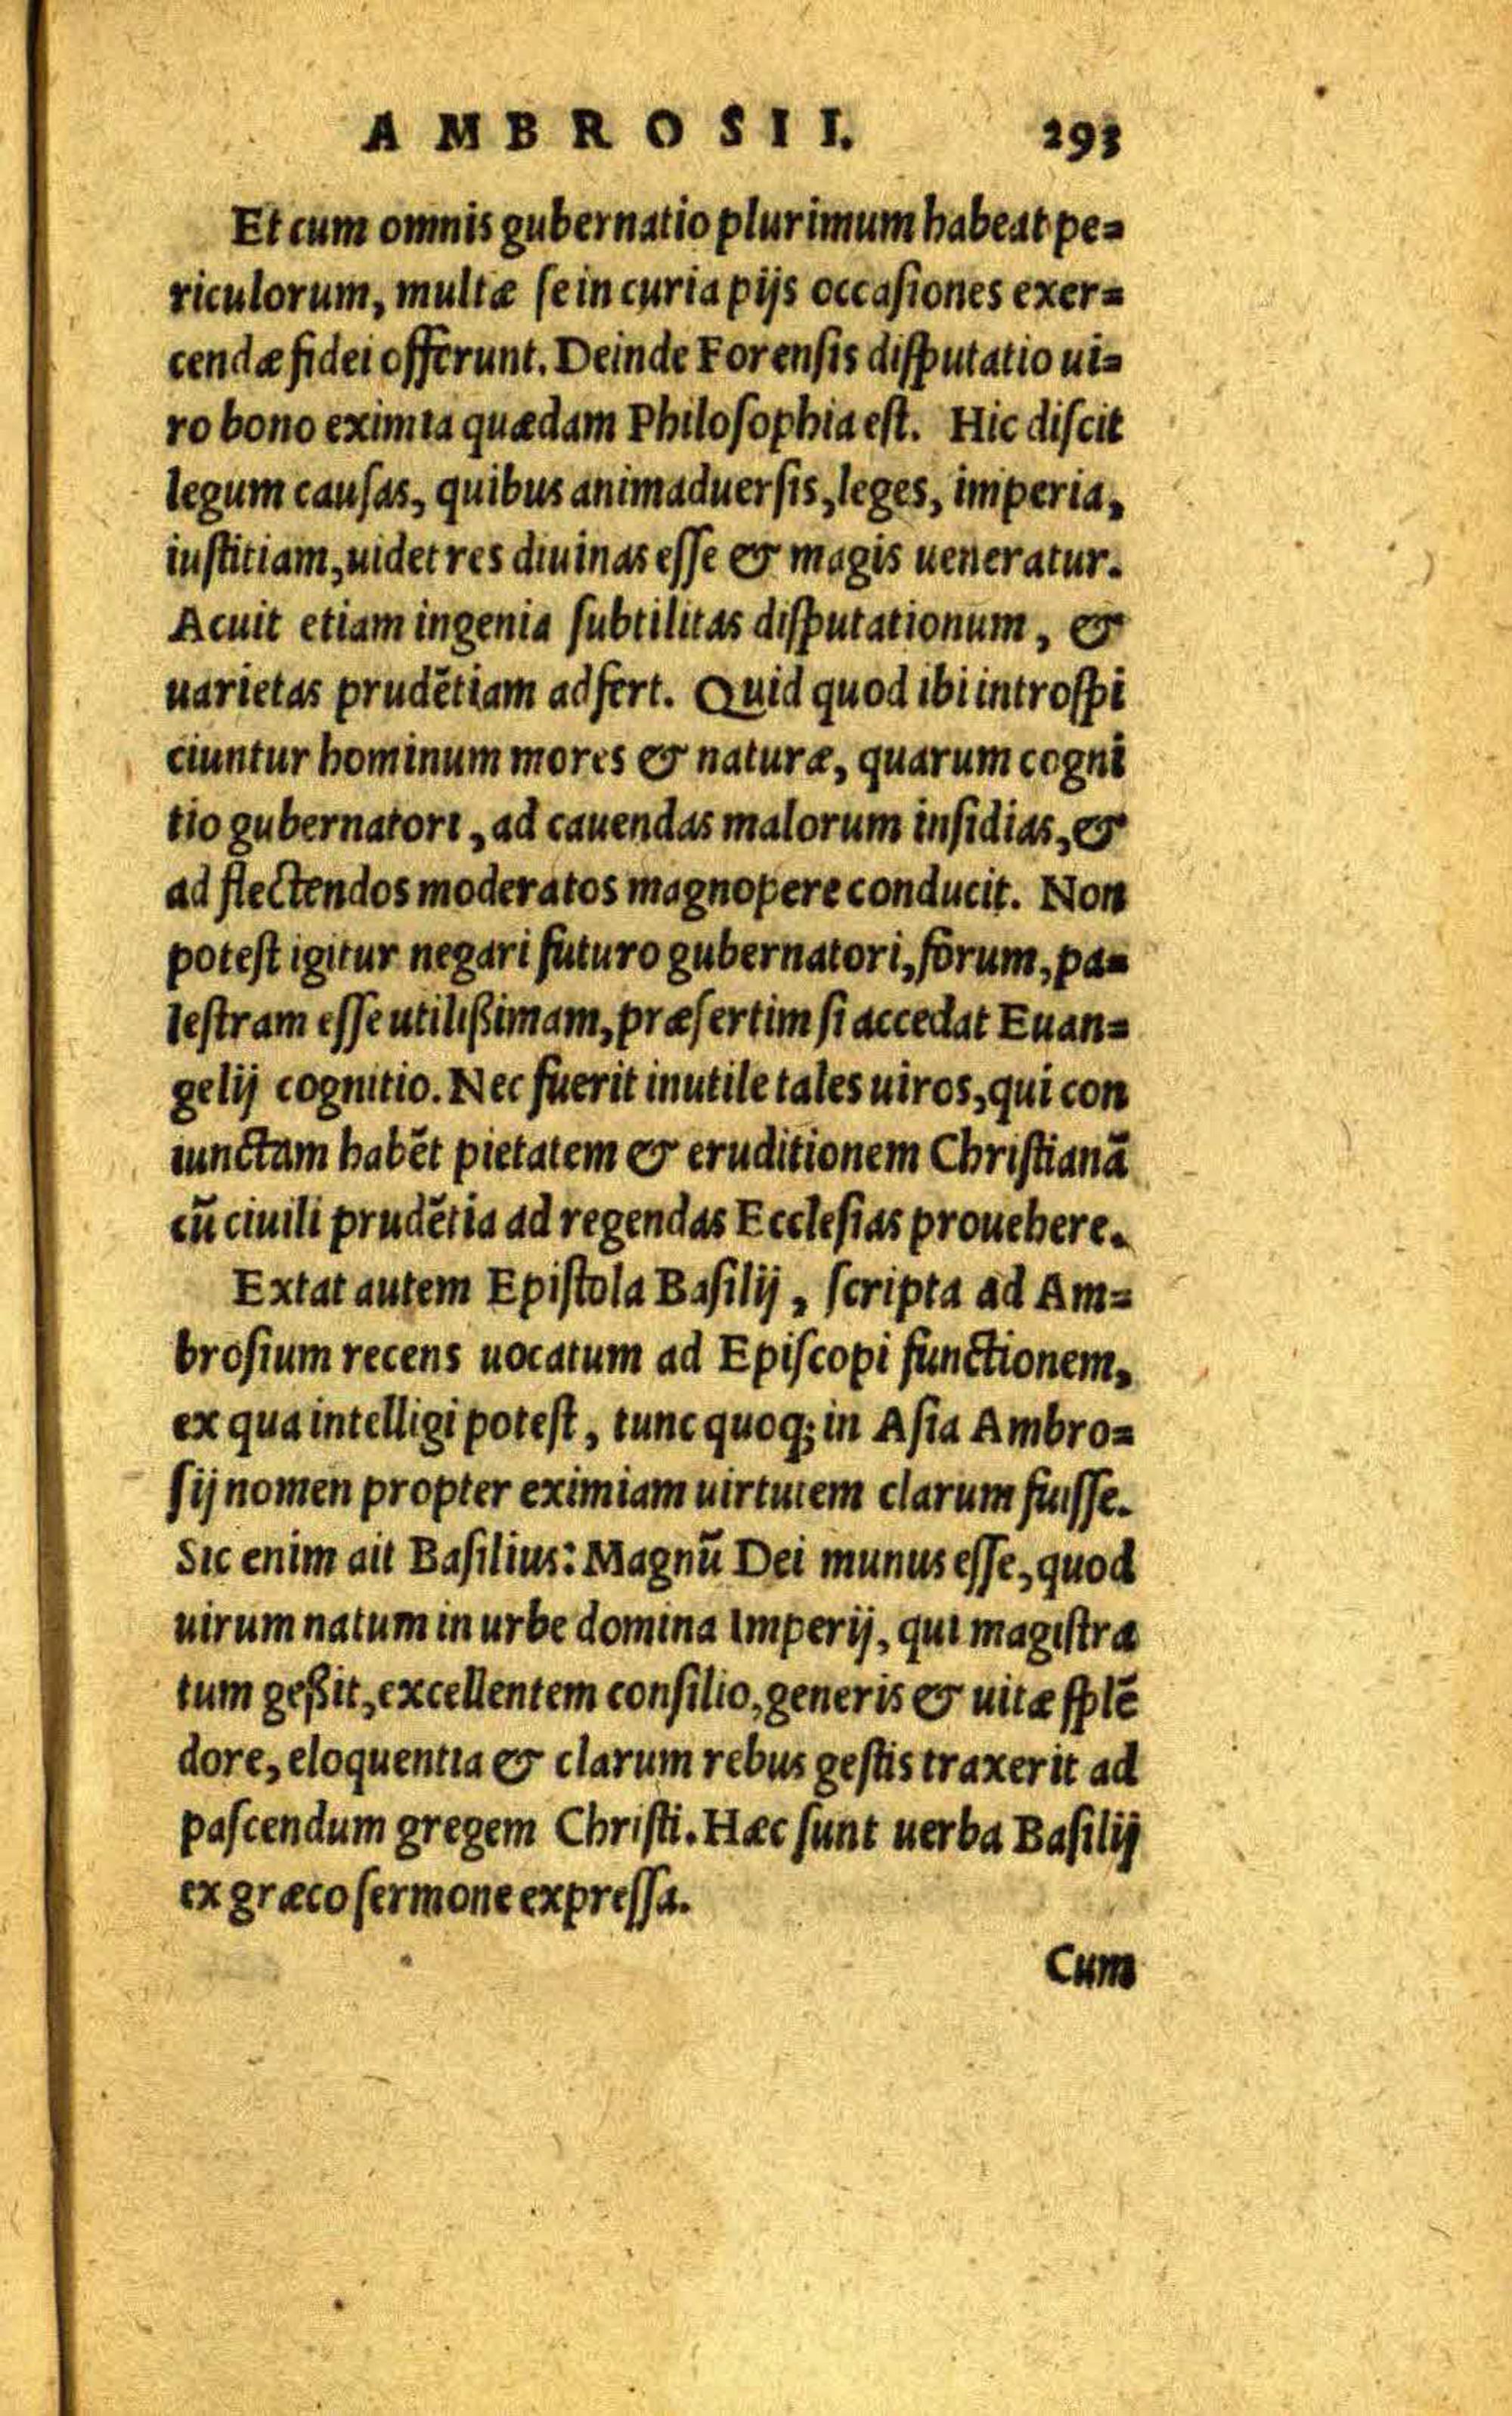 AMBROSII. 293
Et cum omnis gubernatio plurimum habeat pe=
riculorum, multæ ſe in curia pijs occaſiones exer=
cendæ fidei offerunt. Deinde Forenſis diſputatio ui=
ro bono eximia quædam Philoſophia eſt. Hic diſcit
legum cauſas, quibus animaduerſis, leges, imperia,
iuſtitiam, uidet res diuinas eſſe & magis ueneratur.
Acuit etiam ingenia ſubtilitas diſputationum, &
uarietas prudẽtiam adfert. Quid quod ibi introſpi
ciuntur hominum mores & naturæ, quarum cogni
tio gubernatori, ad cauendas malorum inſidias, &
ad flectendos moderatos magnopere conducit. Non
poteſt igitur negari futuro gubernatori, forum, pa=
leſtram eſſe utilißimam, præſertim ſi accedat Euan=
gelij cognitio. Nec fuerit inutile tales uiros, qui con
iunctam habẽt pietatem & eruditionem Chriſtianã
cũ ciuili prudẽtia ad regendas Eccleſias prouehere.
Extat autem Epiſtola Baſilij, ſcripta ad Am=
broſium recens uocatum ad Epiſcopi functionem,
ex qua intelligi poteſt, tunc quoq; in Aſia Ambro=
ſij nomen propter eximiam uirtutem clarum fuiſſe.
Sic enim ait Baſilius: Magnũ Dei munus eſſe, quod
uirum natum in urbe domina Imperij, qui magiſtra
tum geßit, excellentem conſilio, generis & uitæ ſplẽ
dore, eloquentia & clarum rebus geſtis traxerit ad
paſcendum gregem Chriſti. Hæc ſunt uerba Baſilij
ex græco ſermone expreſſa.
Cum